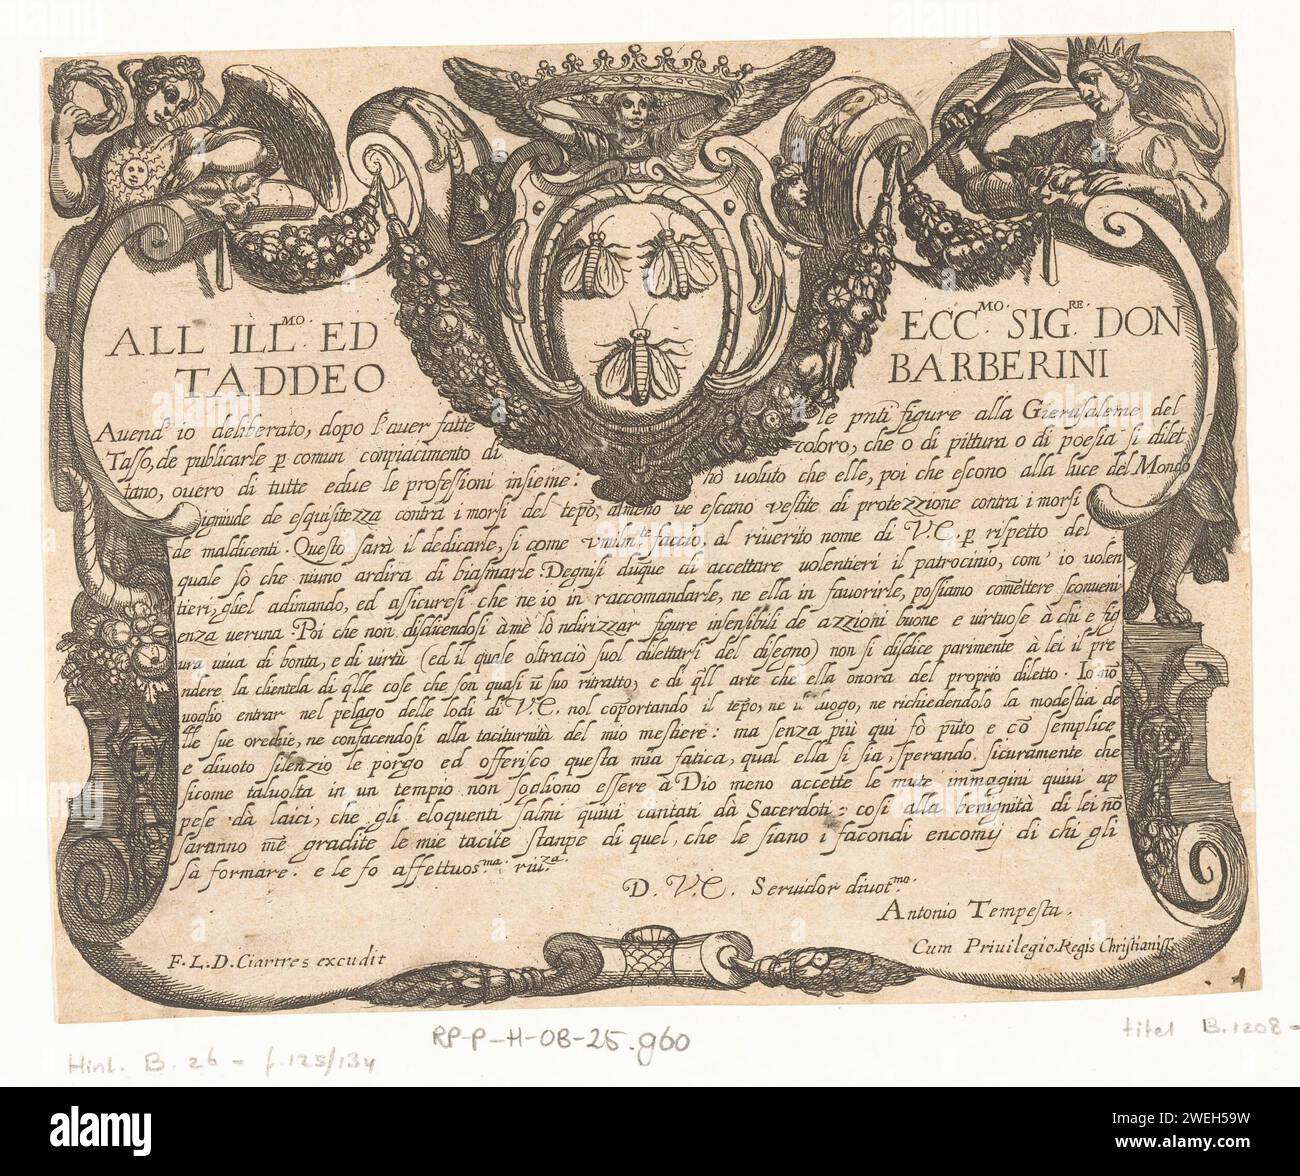 ALL ILL.MO ED ECC.MO SIG.RE DON
TADDEO BARBERINI
Auend' io deliberato, dopo l'auer fatte le pñti figure alla Gierusaleme del
Tasso, de publicarle p comun conpiacimento di coloro, che o di pittura o di poesia si dilet
tano, ouero di tutte edue le professioni insieme: hò uoluto che elle, poi che escono alla luce del Mondo
igniude de esquisitezza contra i morsi del tepõ, almeno ue escano vestite di protezzione contra i morsi
de maldicenti. Questo sarà il dedicarle, si come vmilm.te faccio, al riuerito nome di V.E. p rispetto del
quale sò che niuno ardira di biasmarle. Degnisi duque di accettare uolentieri il patrocinio, com' io uolen
tieri, gliel adimando, ed assicuresi che ne io in raccomandarle, ne ella in fauorirle, possiamo comettere sconueni
enza ueruna. Poi che non disdicendosi à mè lò ndirizzar figure insensibili de azzioni buone e uirtuose à chi e fig
ura uiua di bonta, e di uirtù (ed il quale oltraciò suol dilettarsi del disegno) non si disdice parimente à lei il pre
ndere la clientela di q̃lle cose che son quasi ũ suo ritratto, e di q̃ll arte che ella onora del proprio diletto. Io nõ
uoglio entrar nel pelago delle lodi di V.E. nol coportando il tepõ, ne il luogo, ne richiedendolo la modestia de
lle sue orechie, ne confacendosi alla taciturnità del mio mestiere: ma senza più qui fò puto e cõ semplice
e diuoto silenzio le porgo ed offerisco questa mia fatica, qual ella si sia, sperando sicuramente che
sicome taluolta in un tempio non sogliono essere à Dio meno accette le mute immagini quiui ap
pese dà laici, che gli eloquenti salmi quiui cantati dà Sacerdoti: così alla benignità di lei nõ
saranno mẽ gradite le mie tacite stanpe di quel, che le siano i facondi encomij di chi gli
sà formare. e le fo affettuos.ma riu.za
D. V.E. Seruidor diuot.mo
Antonio Tempesta.
F. L. D. Ciartres excudit Cum Priuilegio. Regis Christianiss.
RP-P-H-OB-25.960
titel B.1208-
Hinl. B. 26 - f.125/134
alamy
alamy
Image ID: 2WEH59W
www.alamy.com